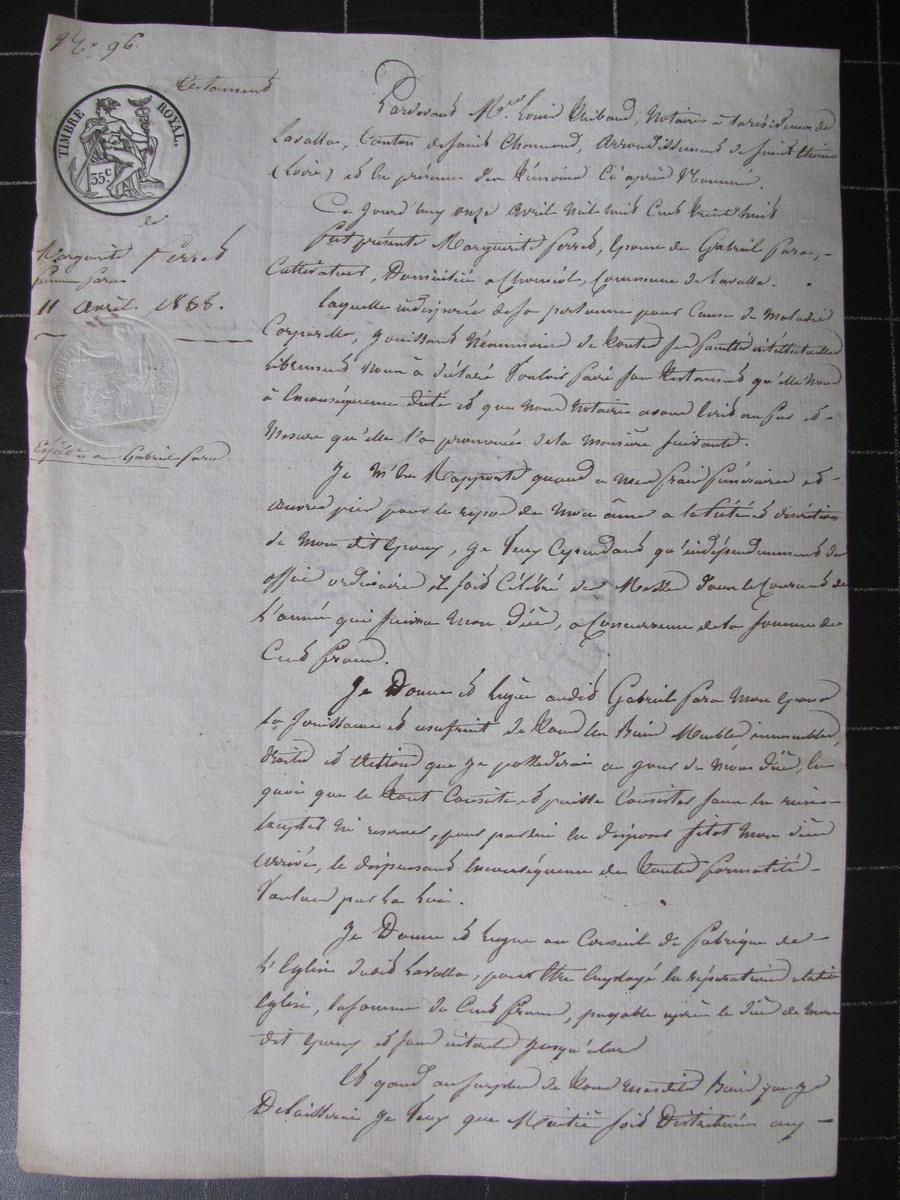 N.° 96.
Testament
TIMBRE ROYAL.
35c
de
Marguerite Ferret
femme fara
11 avril 1838.
Expédié a Gabriel fara
Pardevant Me. Louis Thibaud, Notaire à la résidence de
Lavalla, Canton de saint Chamond, Arrondissement de saint Etienne
(Loire) et en présence des témoins Ci après Nommés.
Ce jourd'huy onze avril mil huit Cent trente huit
fut présente Marguerite ferret, Epouse de Gabriel fara,
Cultivateur, Domiciliée a Commune de Lavalla.
Laquelle indisposée de sa personne pour Cause de maladie
Corporelle, jouissant Néanmoins de toutes ses facultés intellectuelles
librement nous à déclaré Vouloir faire son testament qu'elle Nous
à Enconséquence dicté et que Nous Notaire avons Ecrit au fur et
Mesure qu'elle l'a prononcé de la manière suivante.
Je m'en Rapporte quand a mes frais funéraires et
œuvres pies pour le repos de Mon âme a la piété et discrétion
de Mon dit Epoux, je veux Cependant qu'indépendamment des
offices ordinaires il soit Célébré des Messes dans le Courant de
l'année qui suivra Mon Décès, a Concurrence de la somme de
Cent francs.
Je Donne et Legue audit Gabriel fara Mon Epoux
la jouissance et usufruit de tous les Biens Meubles immeubles,
droits et actions que je possederai au jour de mon décès, en
quoi que le tout Consiste et puisse Consister sans en rien
Excepter ni reserver, pour par lui en disposer sitot Mon décès
arrivé, le dispensant Enconséquence de toutes formalités
Voulues par la Loi.
Je Donne et Legue au Conseil de fabrique de
l'Eglise dudit Lavalla, pour être Employé en réparations a ladite
Eglise, la somme de Cent francs, payable après le décès de Mon
dit Epoux et sans intérêt jusqu'alors
Et quand au surplus de tous mesdits Biens que je
Délaisserai je veux que Moitié soit Distribuée aux